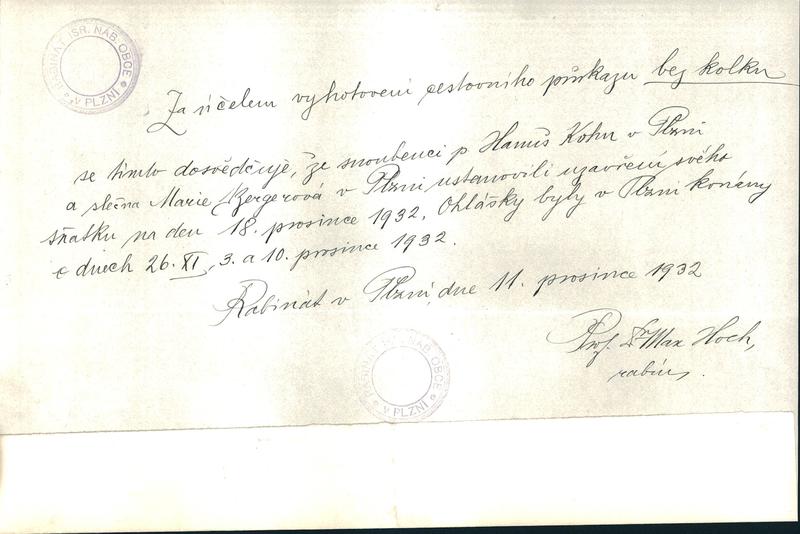 RABINÁT ISR. NÁB. OBCE
V PLZNI
Za účelem vyhotovení cestovního průkazu bez kolku
se tímto dosvědčuje, že snoubenci p Hanuš Kohn v Plzni
a slečna Marie Bergerová v Plzni ustanovili uzavření svého
sňatku na den 18. prosince 1932. Ohlášky byly v Plzni konány
v dnech 26. XI, 3. a 10. prosince 1932.
Rabinát v Plzni, dne 11. prosince 1932
Prof. Dr Max Hoch,
rabín.
RABINÁT ISR. NÁB. OBCE
V PLZNI